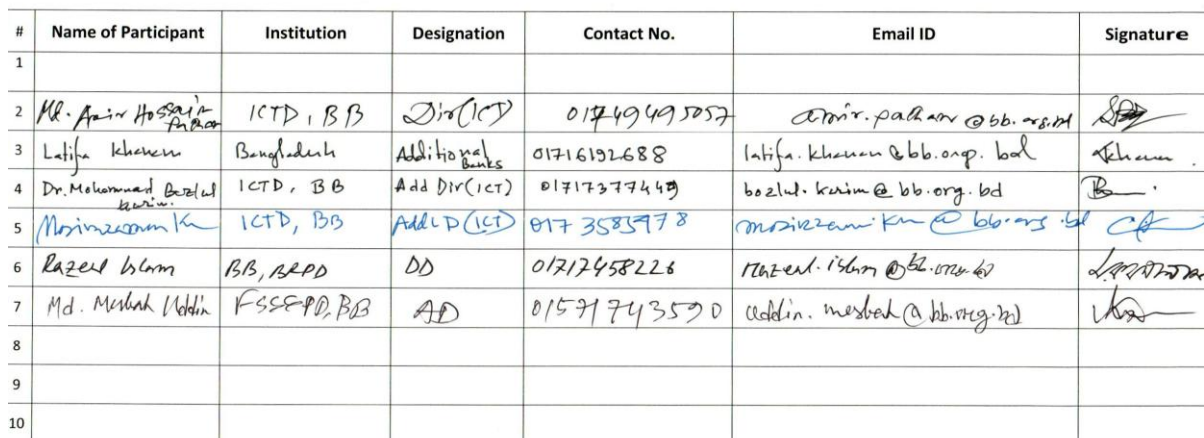 # Name of Participant Institution Designation Contact No. Email ID Signature
1
2 Md. Amir Hossain Pathan ICTD, BB Dir(ICT) 01749495057 amir.pathan@bb.org.bd
3 Latifa Khanam Bangladesh Additional Banks 01716192688 latifa.khanam@bb.org.bd
4 Dr. Mohammad Bozlul Karim ICTD, BB Add Dir(ICT) 01717377449 bozlul.karim@bb.org.bd
5 ICTD, BB Addl D (ICT) 017 3585978
6 Razeul Islam BB, BRPD DD 01717458226 razeul.islam@bb.org.bd
7 Md. Mesbah Uddin FSSSPD, BB AD 01571743590 uddin.mesbah@bb.org.bd
8
9
10